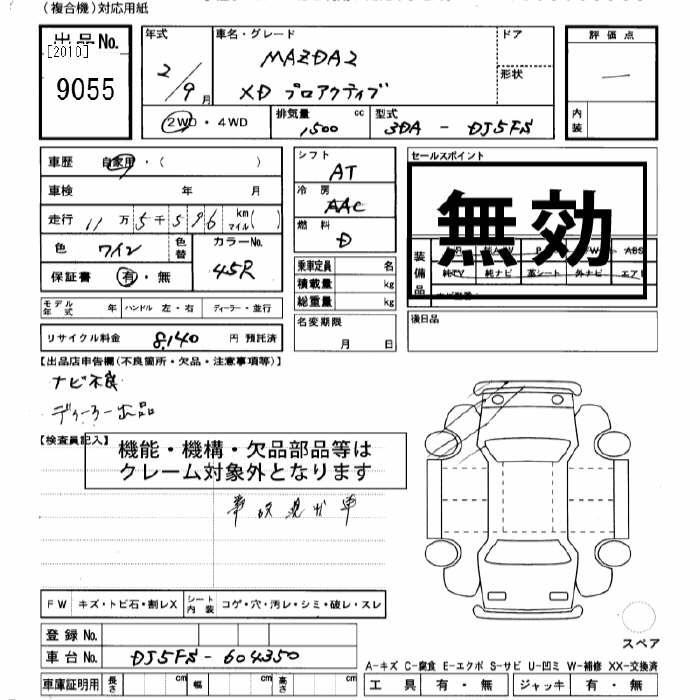 (複合機)対応用紙
出品No.
[2010]
9055
年式
2/9月
車名・グレード
MAZDA2
XD プロアクティブ
ドア
形状
評価点
内装
2WD・4WD
排気量 1,500 cc
型式 3DA - DJ5FS
車歴 自家用・( )
車検 年 月
走行 11万5千596 km マイル( )
色 ワイン 色替
カラーNo. 45R
保証書 有・無
シフト AT
冷房 AAC
燃料 D
乗車定員 名
積載量 kg
総重量 kg
セールスポイント
無効
装備品
ABS
純TV 純ナビ 革シート 外ナビ エアB
モデル年式 年 ハンドル 左・右 ディーラー・並行
リサイクル料金 8,140 円 預託済
名変期限
月 日
後日品
【出品店申告欄(不良箇所・欠品・注意事項等)】
ナビ不良
ディーラー出品
【検査員記入】
機能・機構・欠品部品等は
クレーム対象外となります
事故現状車
FW キズ・トビ石・割レX シート内装 コゲ・穴・汚レ・シミ・破レ・スレ
登録No.
車台No. DJ5FS-604350
車庫証明用 長さ cm 幅 cm 高さ cm
スペア
A-キズ C-腐食 E-エクボ S-サビ U-凹ミ W-補修 XX-交換済
工具 有・無 ジャッキ 有・無